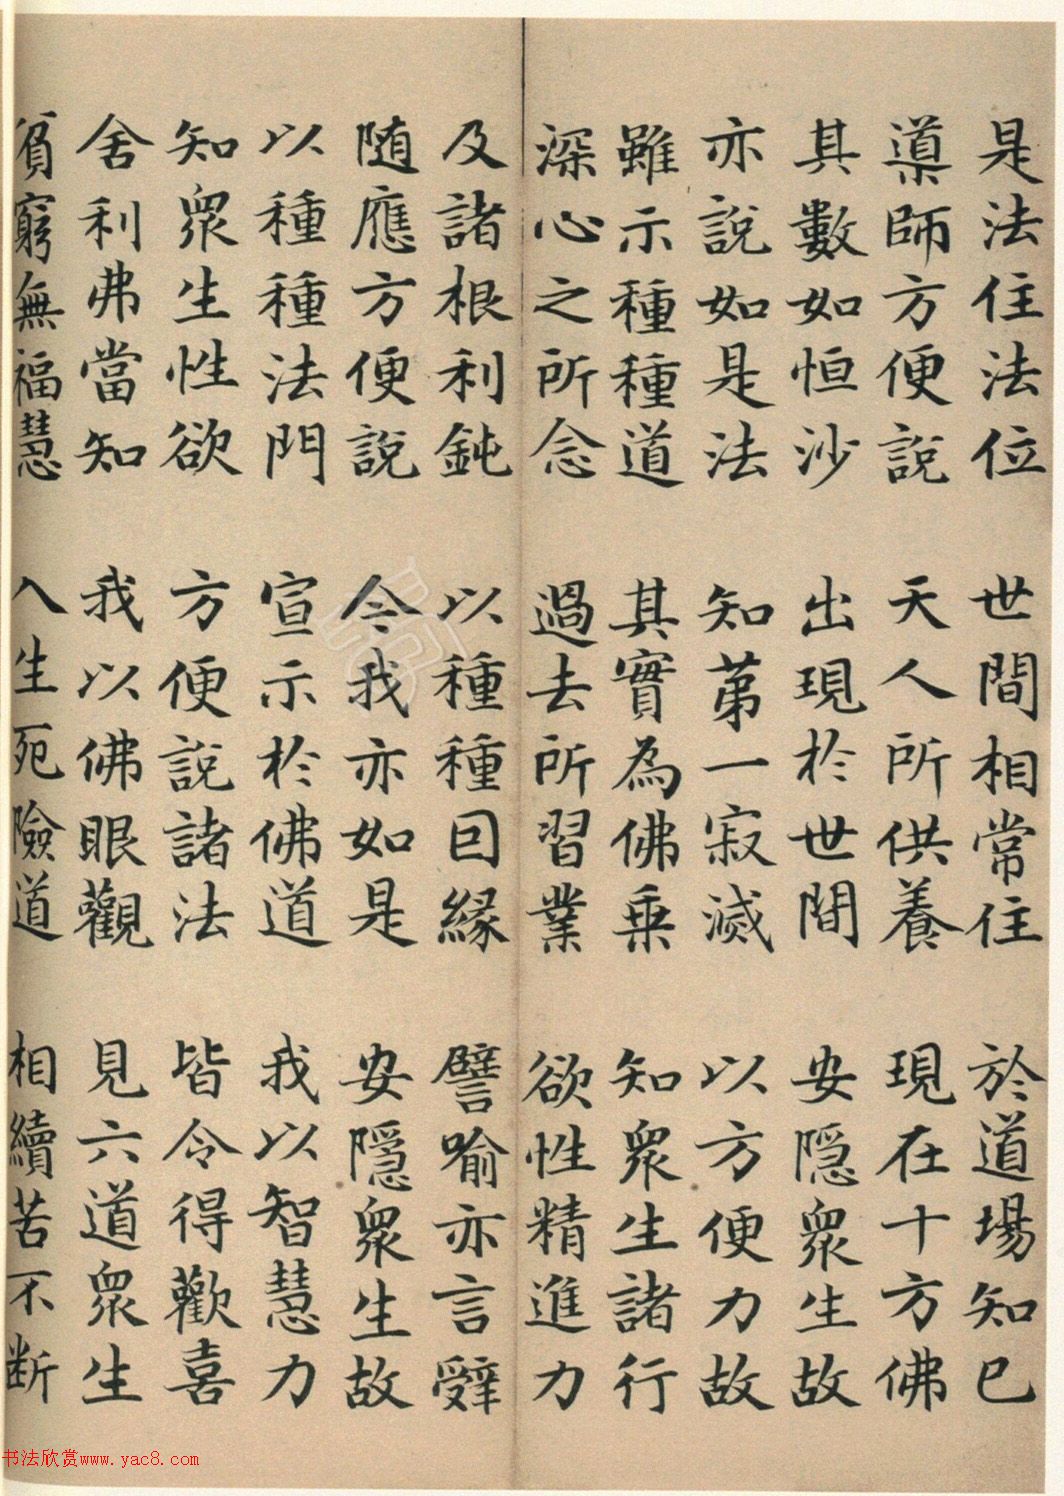 是法住法位 世間相常住 於道場知已
導師方便說 天人所供養 現在十方佛
其數如恒沙 出現於世間 安隱眾生故
亦說如是法 知第一寂滅 以方便力故
雖示種種道 其實為佛乗 知眾生諸行
深心之所念 過去所習業 欲性精進力
及諸根利鈍 以種種因緣 譬喻亦言辭
随應方便說 今我亦如是 安隱眾生故
以種種法門 宣示於佛道 我以智慧力
知眾生性欲 方便說諸法 皆令得歡喜
舍利弗當知 我以佛眼觀 見六道眾生
貧窮無福慧 入生死險道 相續苦不断
书法欣赏www.yac8.com